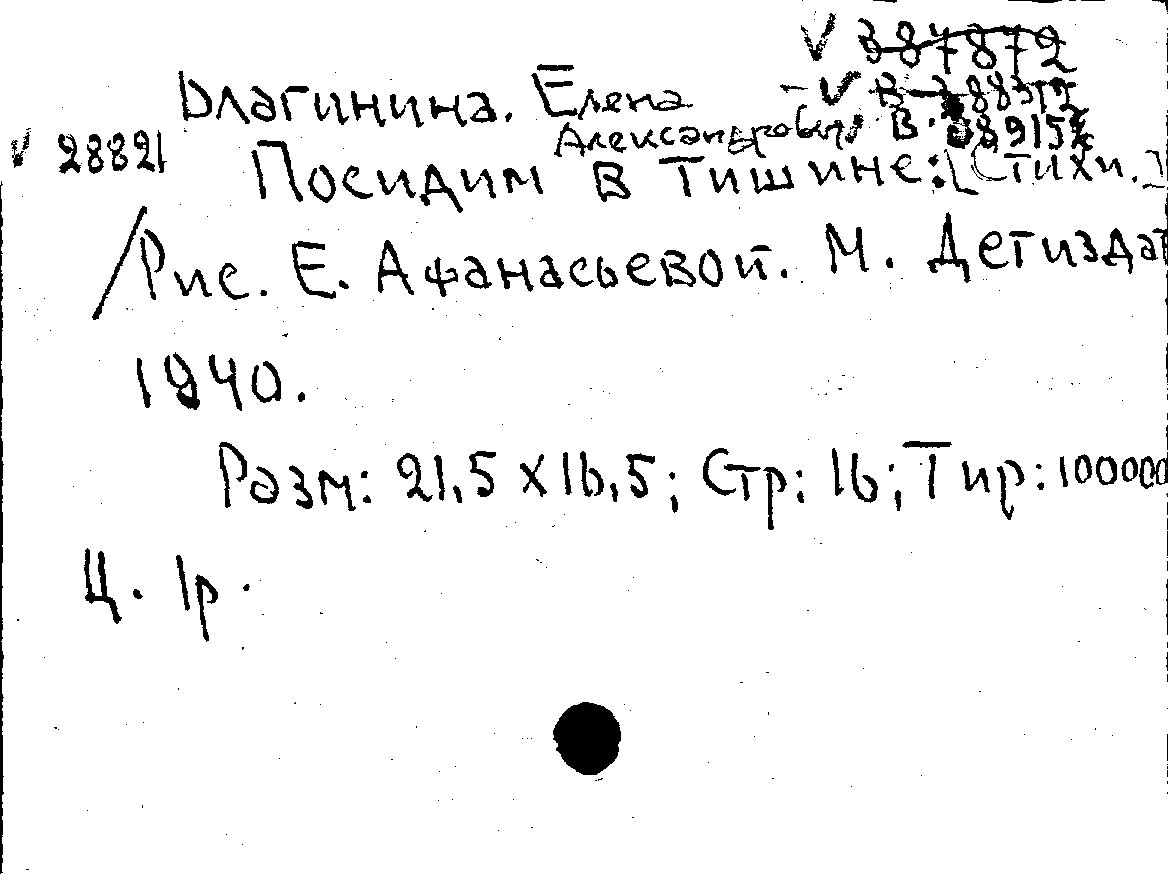 ✓ 387872
Благинина. Елена – ✓ В-388372
Александровна В. 389157
✓ 28821
Посидим в тишине: [Стихи.]
/Рис. Е. Афанасьевой. М. Детиздат
1940.
Разм: 21,5 х 16,5; Стр: 16; Тир: 100000
Ц. 1р.